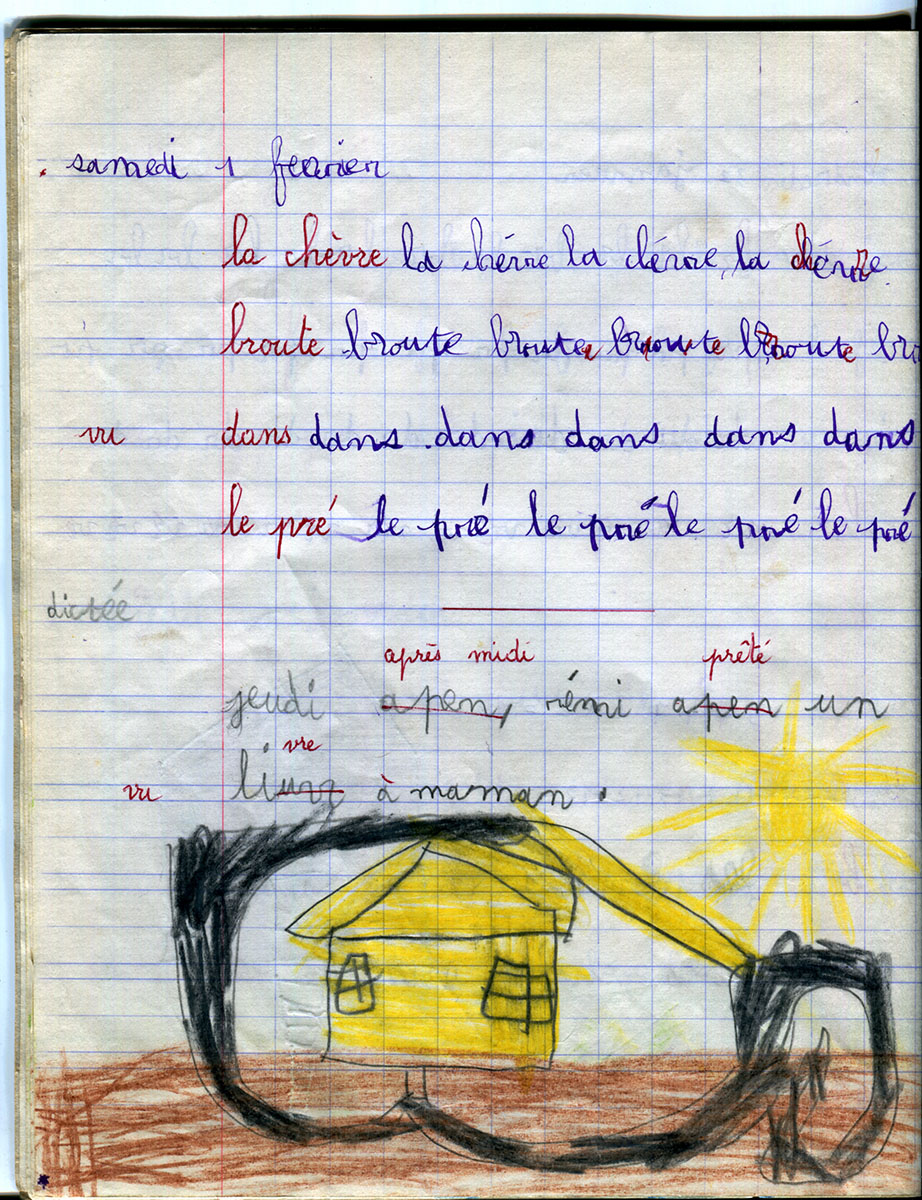 samedi 1 fevrier
la chèvre la hévre la chévre la chévre
broute broute broute broute broute br
vu dans dans dans dans dans dans
le pré le pré le pré le pré le pré
dictée
après midi prêté
jeudi apen, rémi apen un
vre
vu li à maman.